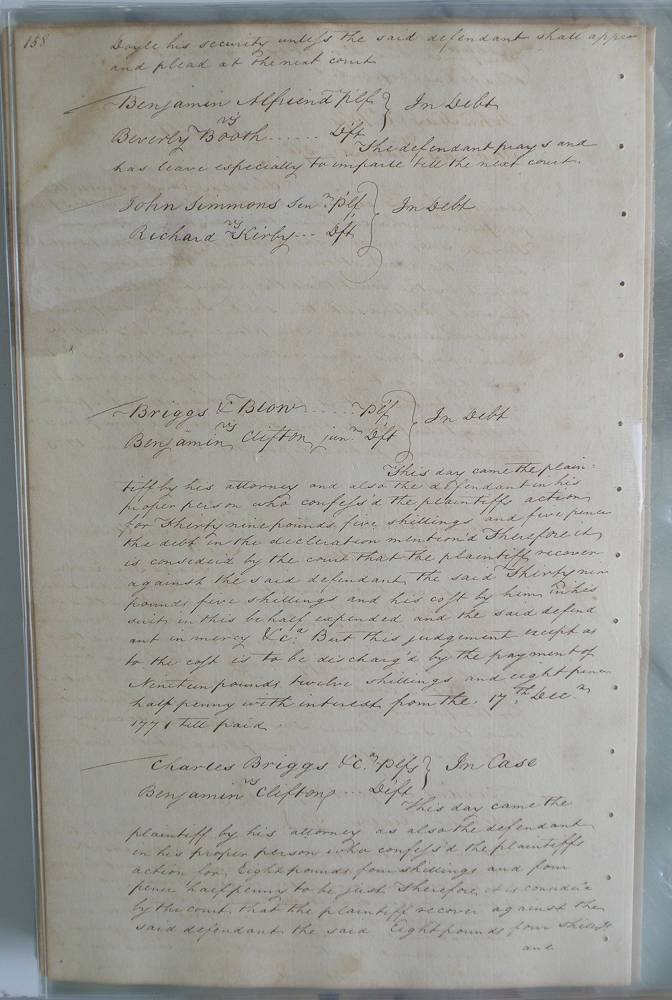 158
Doyle his security unless the said defendant shall appear
and plead at the next court
Benjamin Alfriend plf } In Debt
vs
Beverly Booth ...... Dft
The defendant prays and
has leave especially to imparle till the next court.
John Simmons Senr plf } In Debt
vs
Richard Kirby ... Dft
Briggs & Blow ...... plf } In Debt
vs
Benjamin Clifton junr Dft
This day came the plain=
tiff by his attorney and also the defendant in his
proper person who confess'd the plaintiffs action
for Thirty nine pounds five shillings and five pence
the debt in the decleration mention'd Therefore it
is consider'd by the court that the plaintiff recover
against the said defendant the said Thirty nine
pounds five shillings and his cost by him in his
suit in this behalf expended and the said defend
ant in mercy &ca. But this judgement except as
to the cost is to be discharg'd by the payment of
Nineteen pounds twelve shillings and eight pence
half penny with interest from the 17th. Decr
1771 till paid
Charles Briggs &c. plfs } In Case
vs
Benjamin Clifton ... Deft
This day came the
plaintiff by his attorney as also the defendant
in his proper person who confess'd the plaintiffs
action for Eight pounds four shillings and four
pence half penny to be just Therefore it is consider'd
by the court that the plaintiff recover against the
said defendant the said Eight pounds four shillings
and